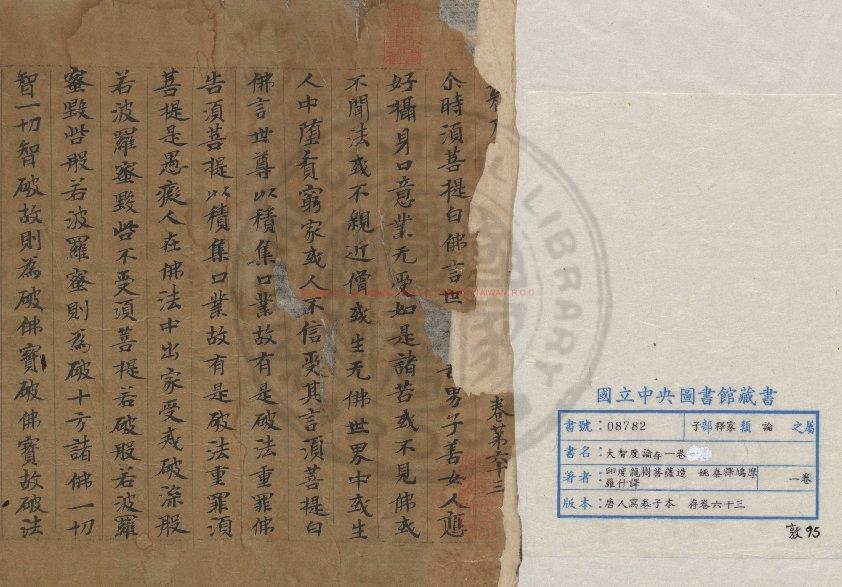 卷第六十三
尒時須菩提白佛言世 男子善女人應
好攝身口意業无受如是諸苦或不見佛或
不聞法或不親近僧或生无佛世界中或生
人中墮貧窮家或人不信受其言須菩提白
佛言世尊以積集口業故有是破法重罪佛
告須菩提以積集口業故有是破法重罪須
菩提是愚癡人在佛法中出家受戒破深般
若波羅蜜毀呰不受須菩提若破般若波羅
蜜毀呰般若波羅蜜則為破十方諸佛一切
智一切智破故則為破佛寶破佛寶故破法
國立中央圖書館藏書
書號：08782 子部釋家類 論 之屬
書名：大智度論存一卷
著者：印度龍樹菩薩造 姚秦釋鳩摩羅什譯 一卷
版本：唐人寫卷子本 存卷六十三
敦95